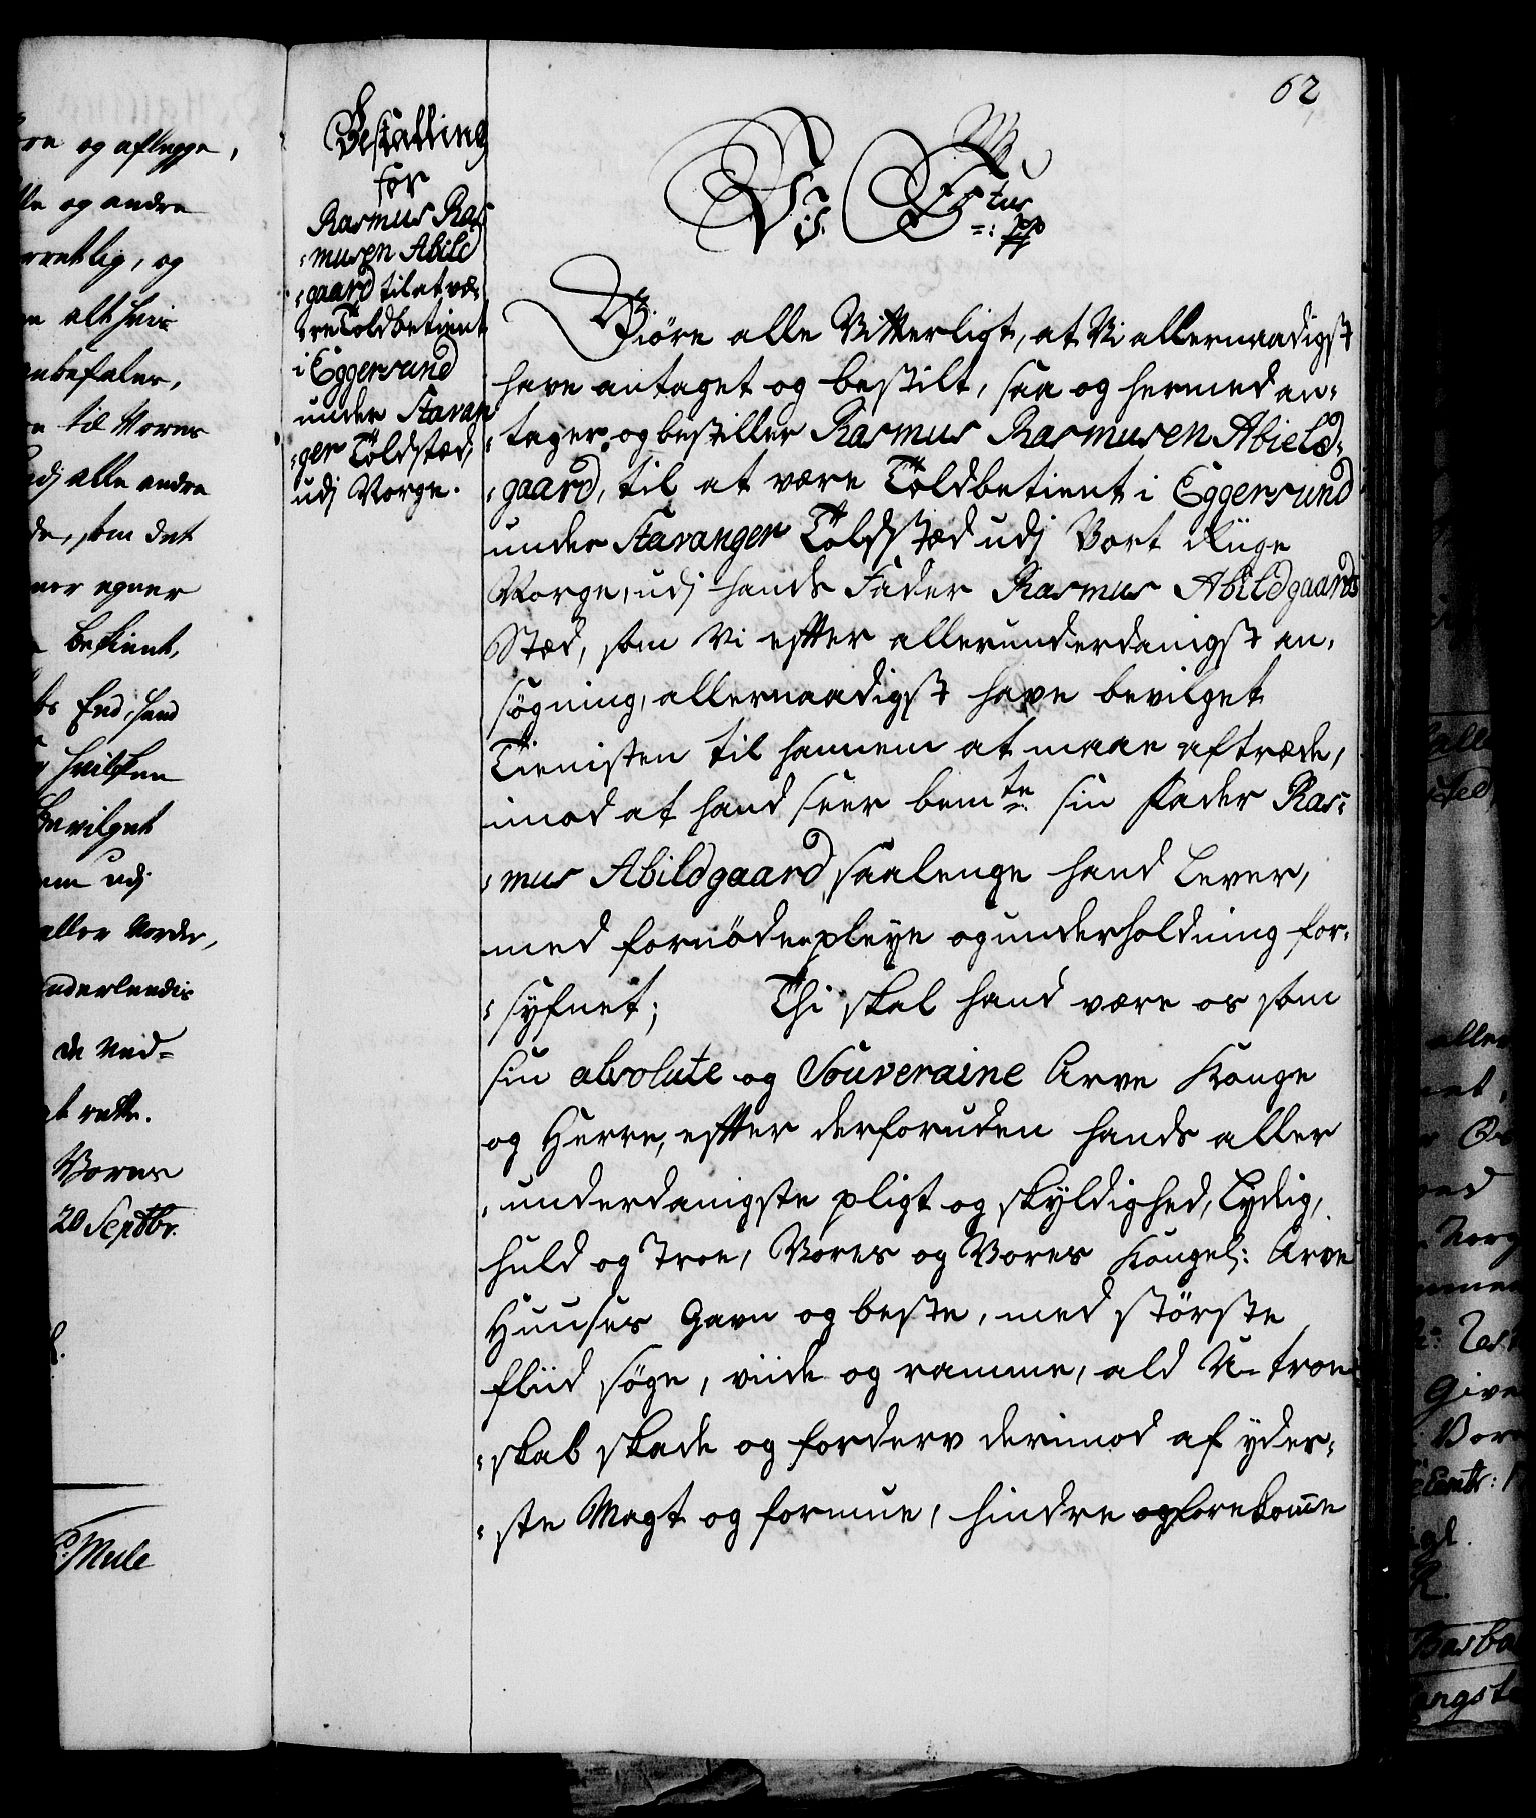 62
Bestalling
for
Rasmus Ras
musen Abild
gaard til at væ-
re Toldbetient
i Eggersund
under Stavan
ger Toldstæd,
udj Norge.
Vi
Giöre alle Vitterligt, at Vi allernaadigst
have antaget og bestilt, saa og hermed an-
tager og bestiller Rasmus Rasmusen Abield-
gaard, til at være Toldbetient i Eggersund
under Stavanger Toldstæd udj Vort Riige
Norge, udj hands Fader Rasmus Abildgaards
Stæd, som Vi efter allerunderdanigst an-
søgning, allernaadigst have bevilget
Tienisten til hannem at maae aftræde,
imod at hand seer bemte: sin Fader Ras-
mus Abildgaard, saalenge hand Lever,
med fornøden pleye og underholdning for-
syfnet; Thi skal hand være os som
sin absolute og Souveraine Arve Konge
og Herre, efter derforuden hands aller
underdanigste pligt og skyldighed, Lydig,
huld og Troe, Vores og Vores Kongel: Arve
Huuses Gavn og beste, med største
fliid søge, viide og ramme, ald U-troe
skab skade og forderv derimod af yder-
ste Magt og formue, hindre og forekomme
re og aflegge,
lle og andre
rretlig, og
alt hvis
nbefaler,
til Vores
dj alle andre
de, som det
nor egner
betient,
End, hand
hvilken
Bevilget
em udj
aller Norder,
nderlandis
de Ved-
at rette.
Vores
20 Septbr.
C: Mule